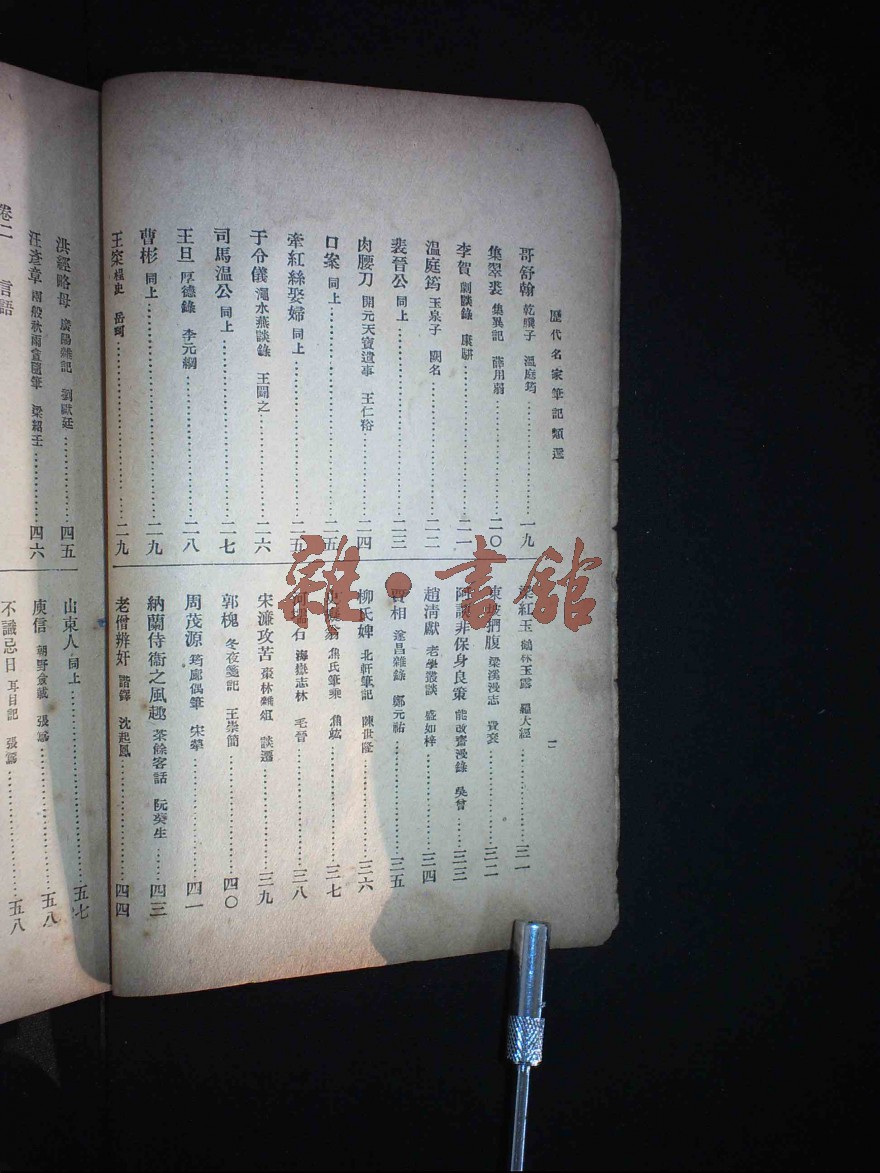 歷代名家筆記類選
二
哥舒翰 乾𦠆子 溫庭筠 一九
集翠裘 集異記 薛用弱 二〇
李賀 劇談錄 康駢 二一
溫庭筠 玉泉子 闕名 二二
裴晉公 同上 二三
肉腰刀 開元天寶遺事 王仁裕 二四
口案 同上 二五
牽紅絲娶婦 同上 二五
于令儀 澠水燕談錄 王闢之 二六
司馬溫公 同上 二七
王旦 厚德錄 李元綱 二八
曹彬 同上 二九
王寀 桯史 岳珂 二九
梁紅玉 鶴林玉露 羅大經 三一
東坡捫腹 梁溪漫志 費袞 三二
阿諛非保身良策 能改齋漫錄 吳曾 三三
趙清獻 老學叢談 盛如梓 三四
賈相 遂昌雜錄 鄭元祐 三五
柳氏婢 北軒筆記 陳世隆 三六
翁 焦氏筆乘 焦竑 三七
石 海嶽志林 毛晉 三八
宋濂攻苦 棗林雜俎 談遷 三九
郭槐 冬夜箋記 王崇簡 四〇
周茂源 筠廊偶筆 宋犖 四一
納蘭侍衞之風趣 茶餘客話 阮葵生 四三
老僧辨奸 諧鐸 沈起鳳 四四
洪經略母 廣陽雜記 劉獻廷 四五
汪彥章 兩般秋雨盦隨筆 梁紹壬 四六
卷二 言語
山東人 同上 五七
庾信 朝野僉載 張鷟 五八
不識忌日 耳目記 張鷟 五八
雜·書館